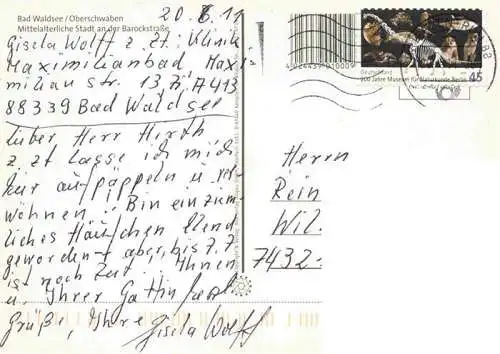 Bad Waldsee / Oberschwaben
Mittelalterliche Stadt an der Barockstraße
20. 6. 11
Gisela Wolff z. Zt. Klinik
Maximilianbad Maxi-
milian str. 13, Z. A413
88339 Bad Waldsee
Lieber Herr Hirth
z. Zt lasse ich mich
hier aufpäppeln u. ver-
wöhnen. Bin ein ziem-
liches Häufchen Elend
geworden - aber, bis 7.7.
ist noch Zeit. Ihnen
u. Ihrer Gattin
Grüße, Ihre
Gisela Wolff
Deutschland
200 Jahre Museum für Naturkunde Berlin
45
Herrn
Rein
Wil
7432